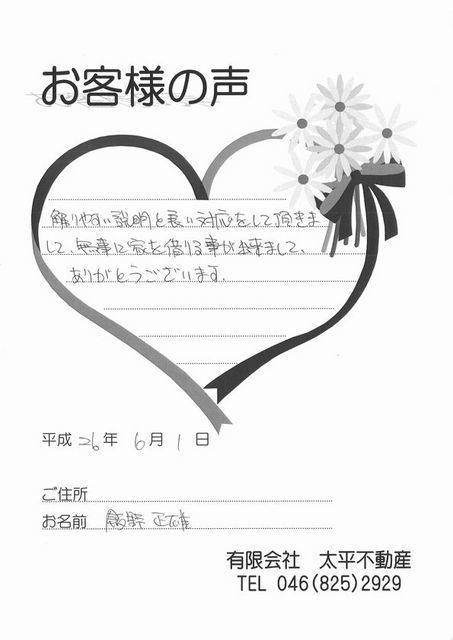 お客様の声
解りやすい説明と良い対応をして頂きま
して、無事に家を借りる事が出来まして、
ありがとうございます。
平成 26 年 6 月 1 日
ご住所
お名前 飯野 正雄
有限会社 太平不動産
TEL 046(825)2929